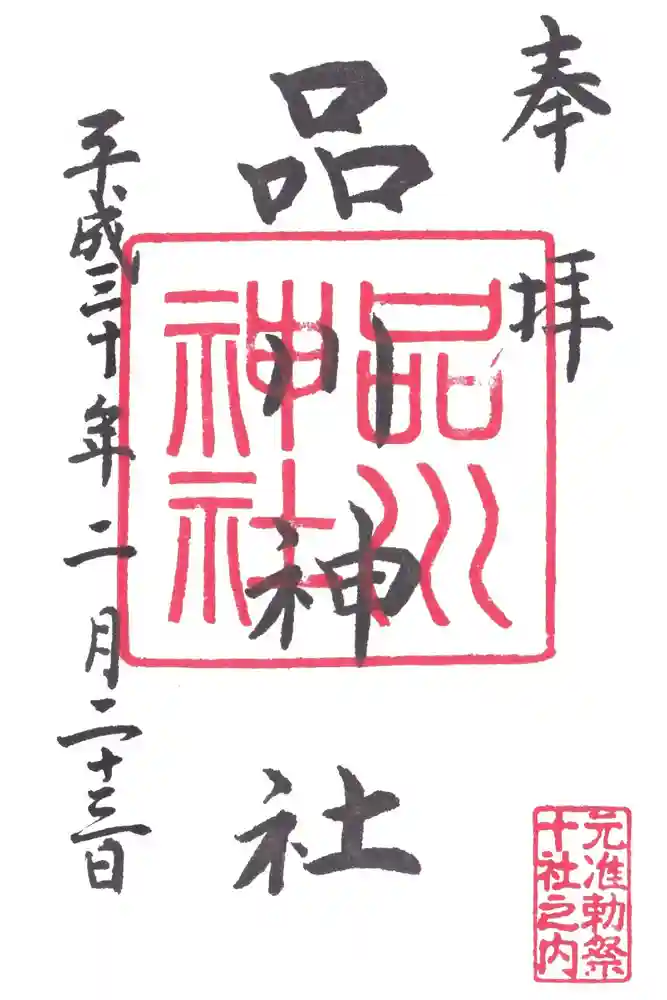 奉拝
品川神社
平成三十年二月二十三日
品川
神社
元准勅祭
十社之内